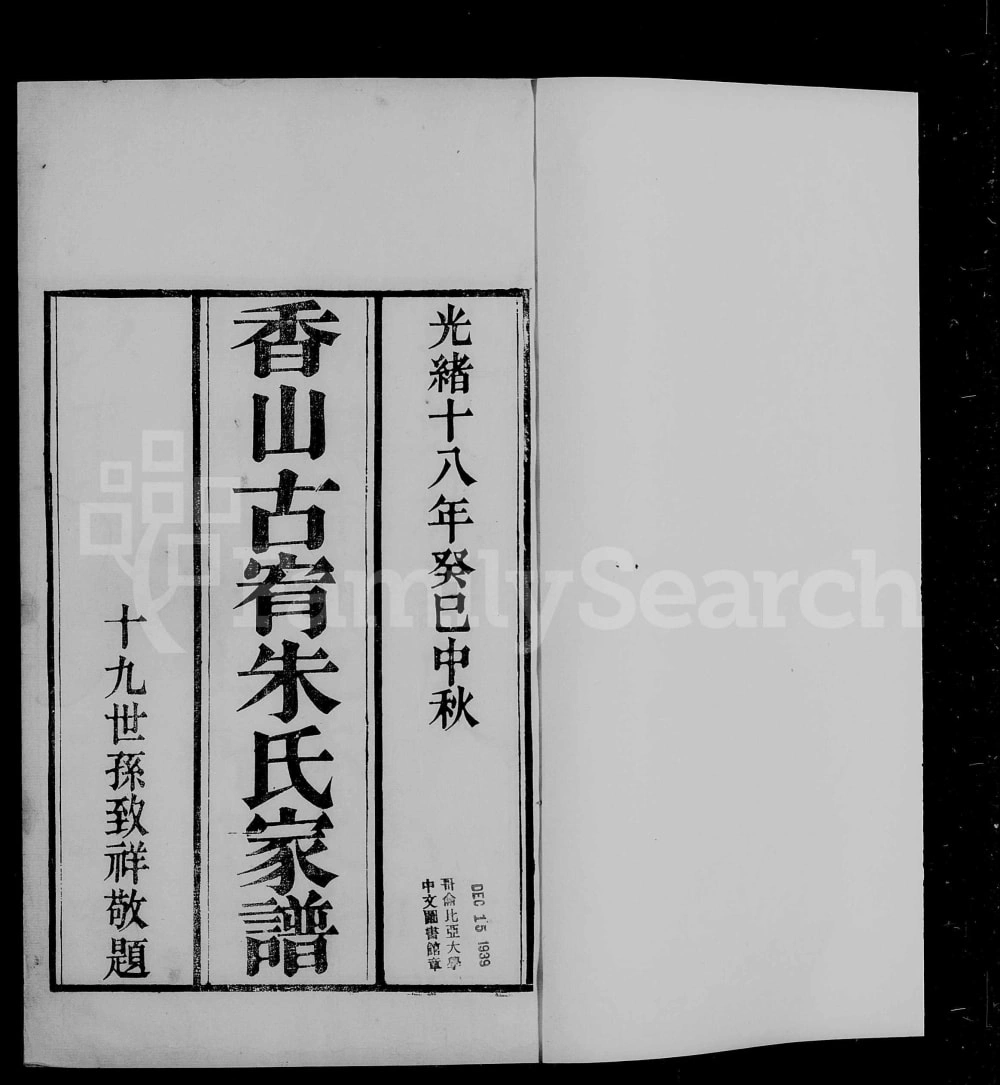 光緒十八年癸巳中秋
香山古宥朱氏家譜
十九世孫致祥敬題
DEC 15 1939
哥倫比亞大學
中文圖書館章
FamilySearch